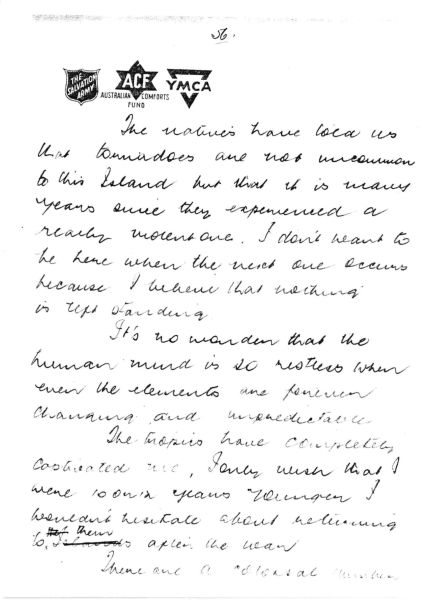 56.
THE SALVATION ARMY
ACF
AUSTRALIAN COMFORTS FUND
YMCA
The natives have told us
that tornadoes are not uncommon
to this Island but that it is many
years since they experienced a
really violent one. I don't want to
be here when the next one occurs
because I believe that nothing
is left standing
It's no wonder that the
human mind is so restless when
even the elements are forever
changing and unpredictable
The tropics have completely
captivated me, I only wish that I
were 10 or 12 years younger I
wouldn't hesitate about returning
to them after the war
There are a colossal number